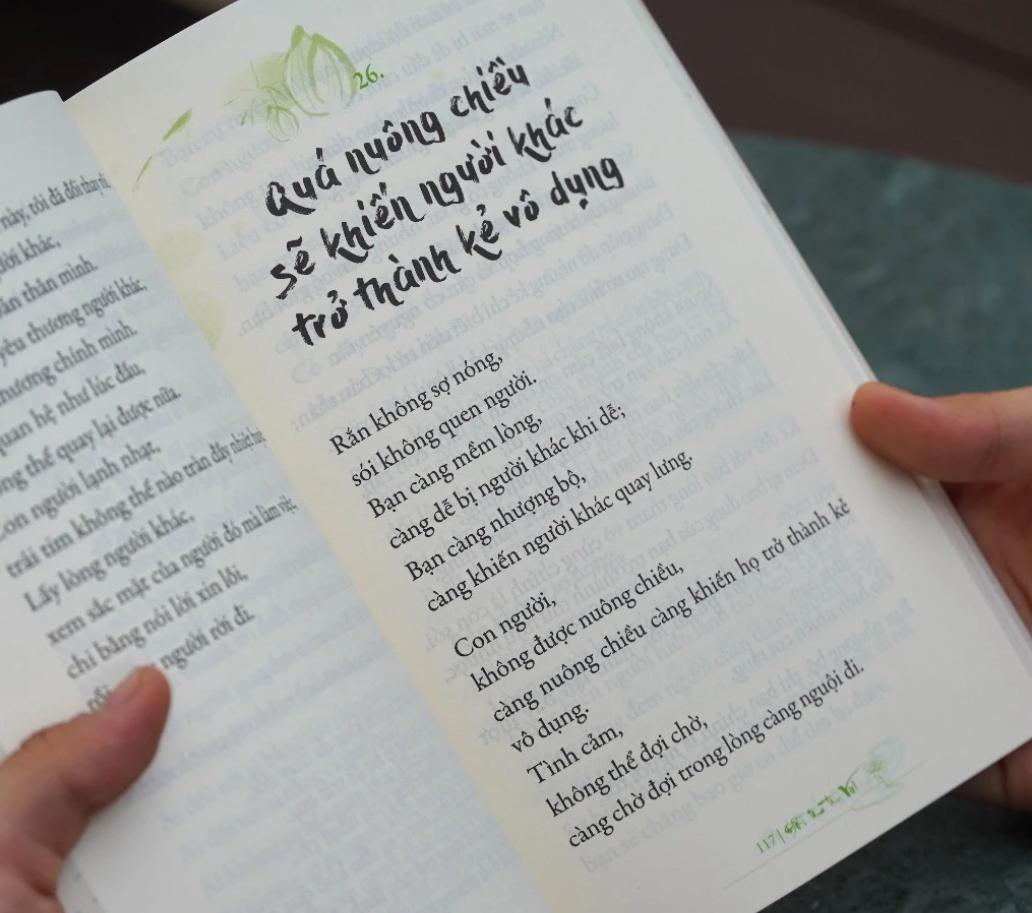 này, tôi đã đổi thay
khác,
thân mình.
yêu thương người khác,
thương chính mình.
quan hệ như lúc đầu,
thể quay lại được nữa.
con người lạnh nhạt,
trái tim không thể nào tràn đầy nhiệt
Lấy lòng người khác,
xem sắc mặt của người đó mà làm việc,
chi bằng nói lời xin lỗi,
rồi người rời đi.
26.
Quá nuông chiều
sẽ khiến người khác
trở thành kẻ vô dụng
Rắn không sợ nóng,
sói không quen người.
Bạn càng mềm lòng,
càng dễ bị người khác khi dễ;
Bạn càng nhượng bộ,
càng khiến người khác quay lưng.
Con người,
không được nuông chiều,
càng nuông chiều càng khiến họ trở thành kẻ
vô dụng.
Tình cảm,
không thể đợi chờ,
càng chờ đợi trong lòng càng nguội đi.
117 |